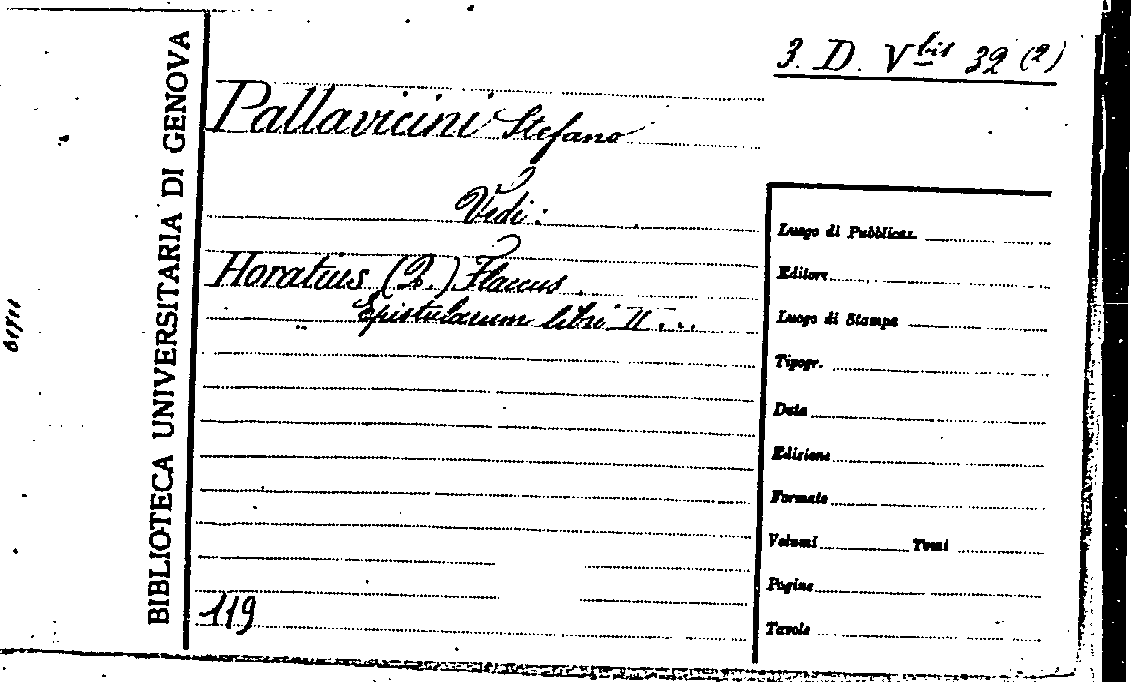 3. D. V bis 32 (2)
Pallavicini Stefano
Vedi:
Horatius (Q.) Flaccus.
Epistularum libri II...
119
BIBLIOTECA UNIVERSITARIA DI GENOVA
Luogo di Pubblicaz.
Editore
Luogo di Stampa
Tipogr.
Data
Edizione
Formato
Volumi Tomi
Pagine
Tavole